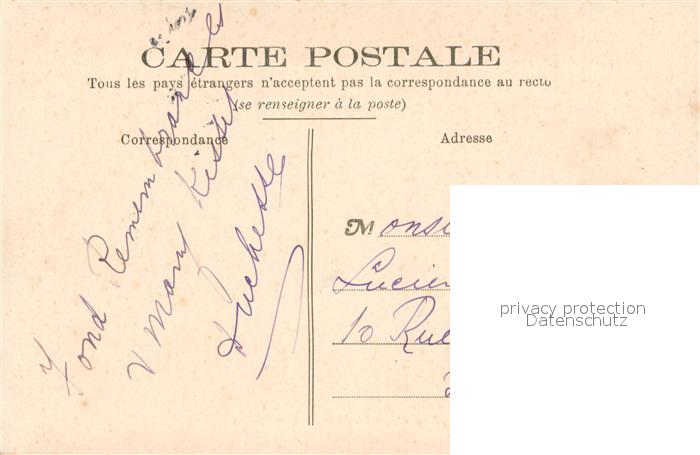 CARTE POSTALE
Tous les pays étrangers n'acceptent pas la correspondance au recto
(se renseigner à la poste)
Correspondance
Adresse
Fond Remembrances
& Many Kisses
Duchesse
Monsi
Lucien
10 Rue
privacy protection
Datenschutz